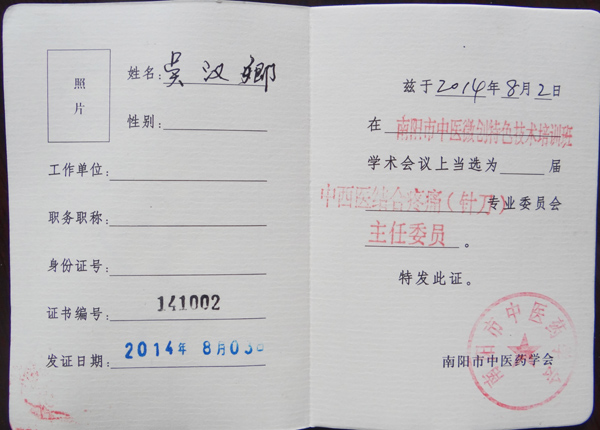 照片
姓名:吴汉卿
性别:
工作单位:
职务职称:
身份证号:
证书编号:141002
发证日期:2014年8月03日
兹于2014年8月2日
在南阳市中医微创特色技术培训班
学术会议上当选为 届
中西医结合疼痛(针刀)专业委员会
主任委员。
特发此证。
南阳市中医药学会
南阳市中医药学会